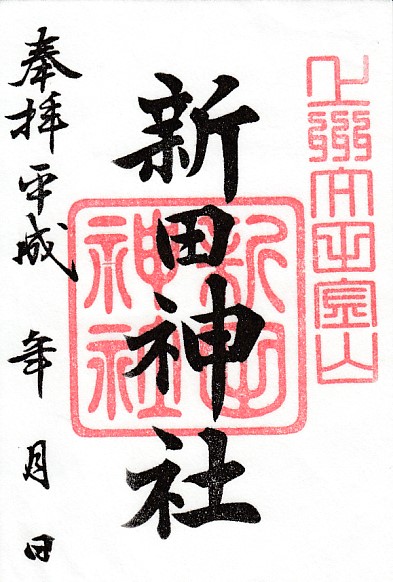 上州太田金山
新田神社
新田
神社
奉拝 平成 年 月 日